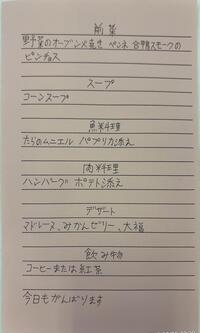 前菜
野菜のオーブン焼き ペンネ 合鴨スモークの
ピンチョス
スープ
コーンスープ
魚料理
たらのムニエル パプリカ添え
肉料理
ハンバーグ ポテト添え
デザート
マドレーヌ、みかんゼリー、大福
飲み物
コーヒーまたは紅茶
今日もがんばります